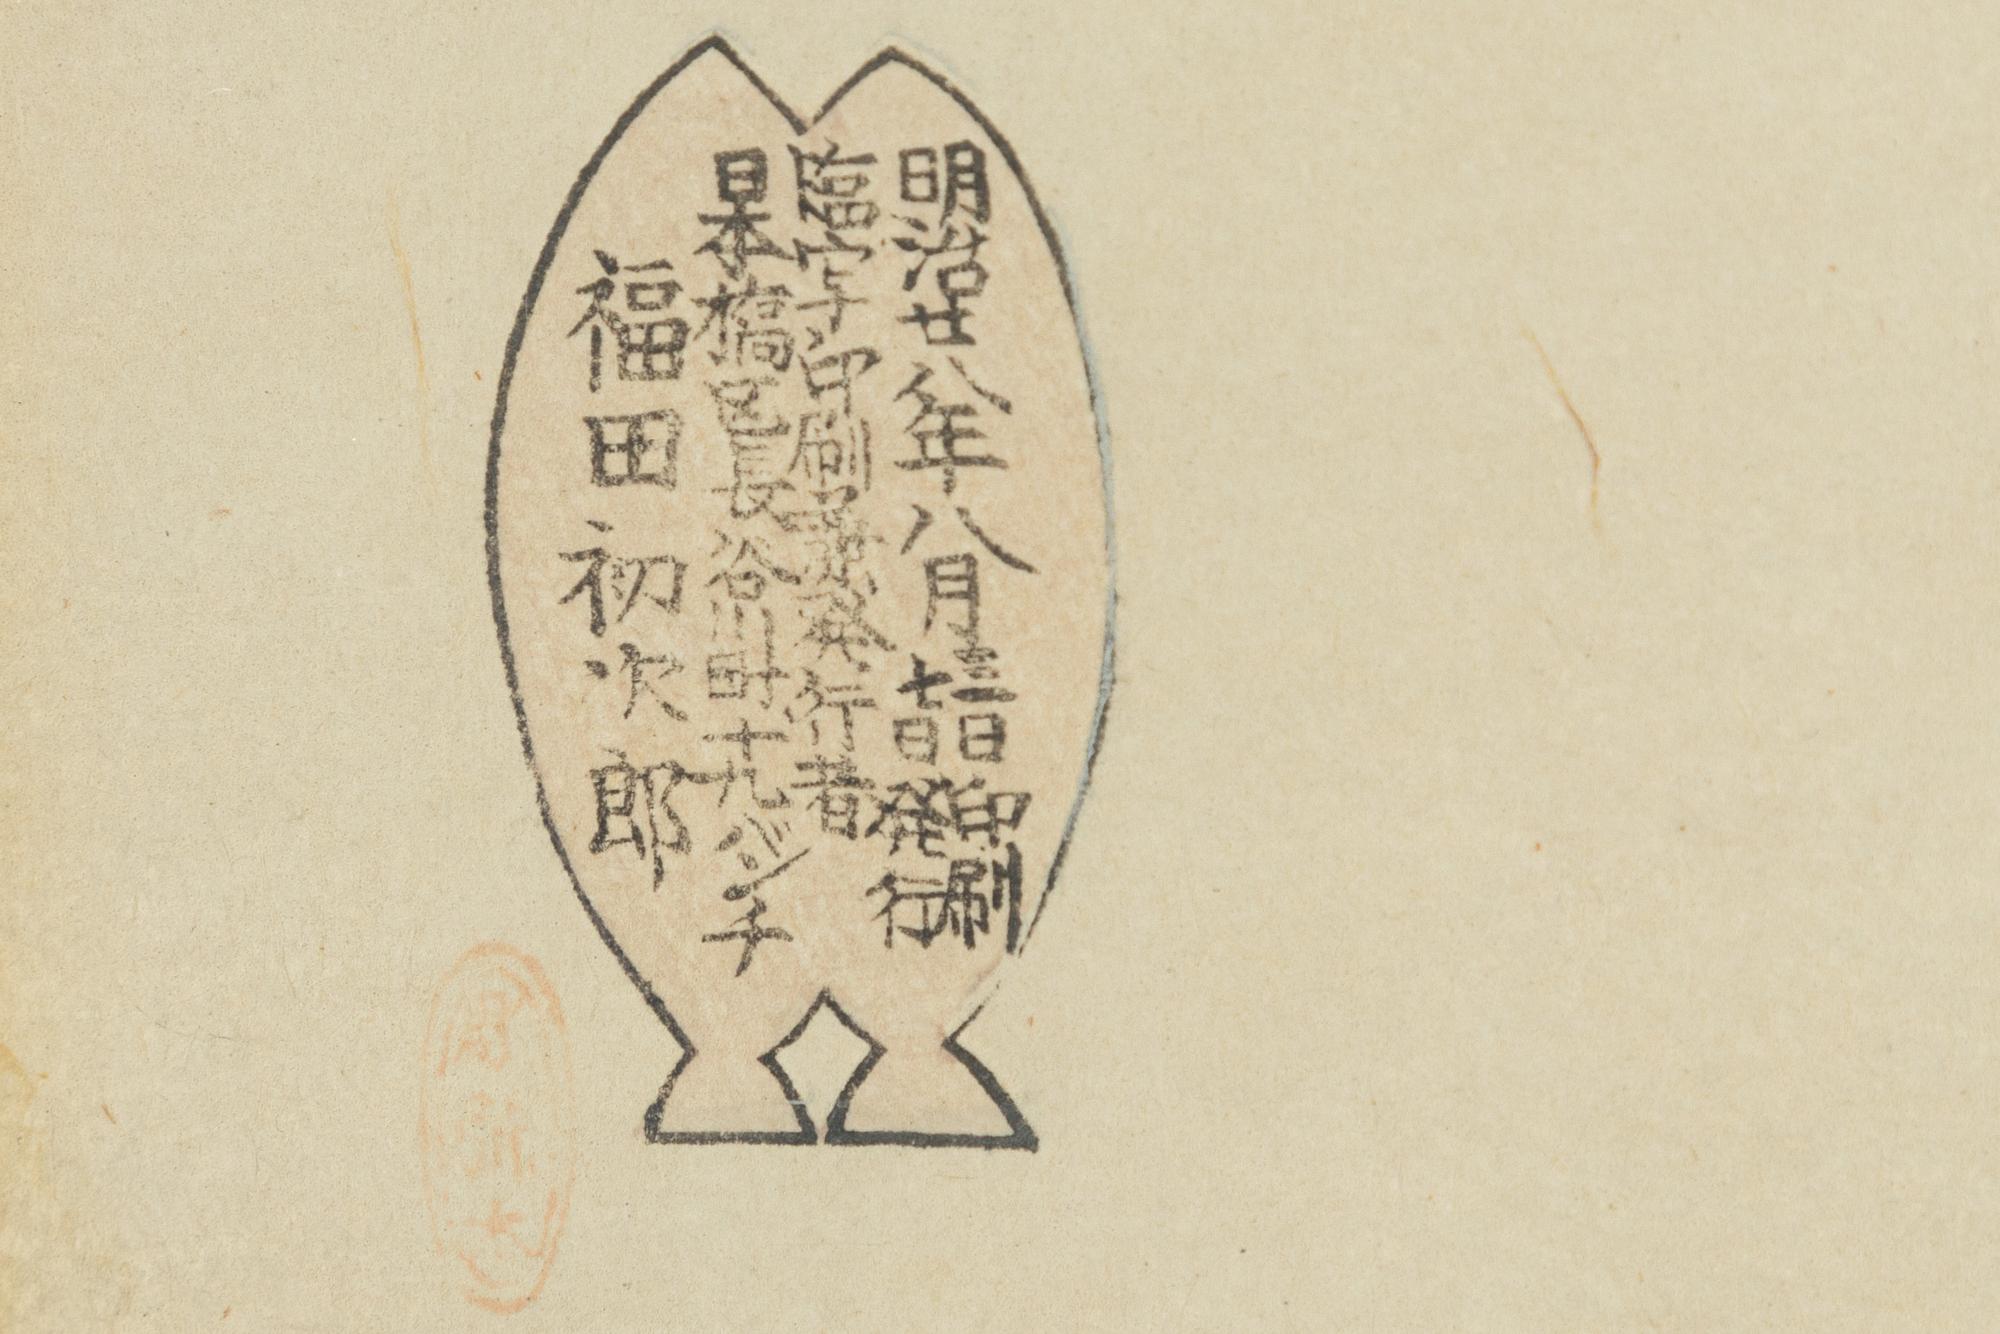 明治廿八年八月
日印刷
日発行
臨写印刷兼発行者
日本橋区長谷川町十九バンチ
福田初次郎